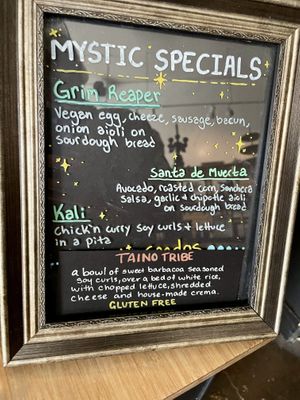 MYSTIC SPECIALS
Grim Reaper
Vegan egg, cheeze, sausage, bacun,
onion aioli on
sourdough bread
Santa de Muerta
Avocado, roasted corn, sonchera
salsa, garlic + chipotle aioli
on sourdough bread
Kali
chick'n curry soy curls + lettuce
in a pita
TAINO TRIBE
a bowl of sweet barbacoa seasoned
soy curls, over a bed of white rice,
with chopped lettuce, shredded
cheese and house-made crema.
GLUTEN FREE